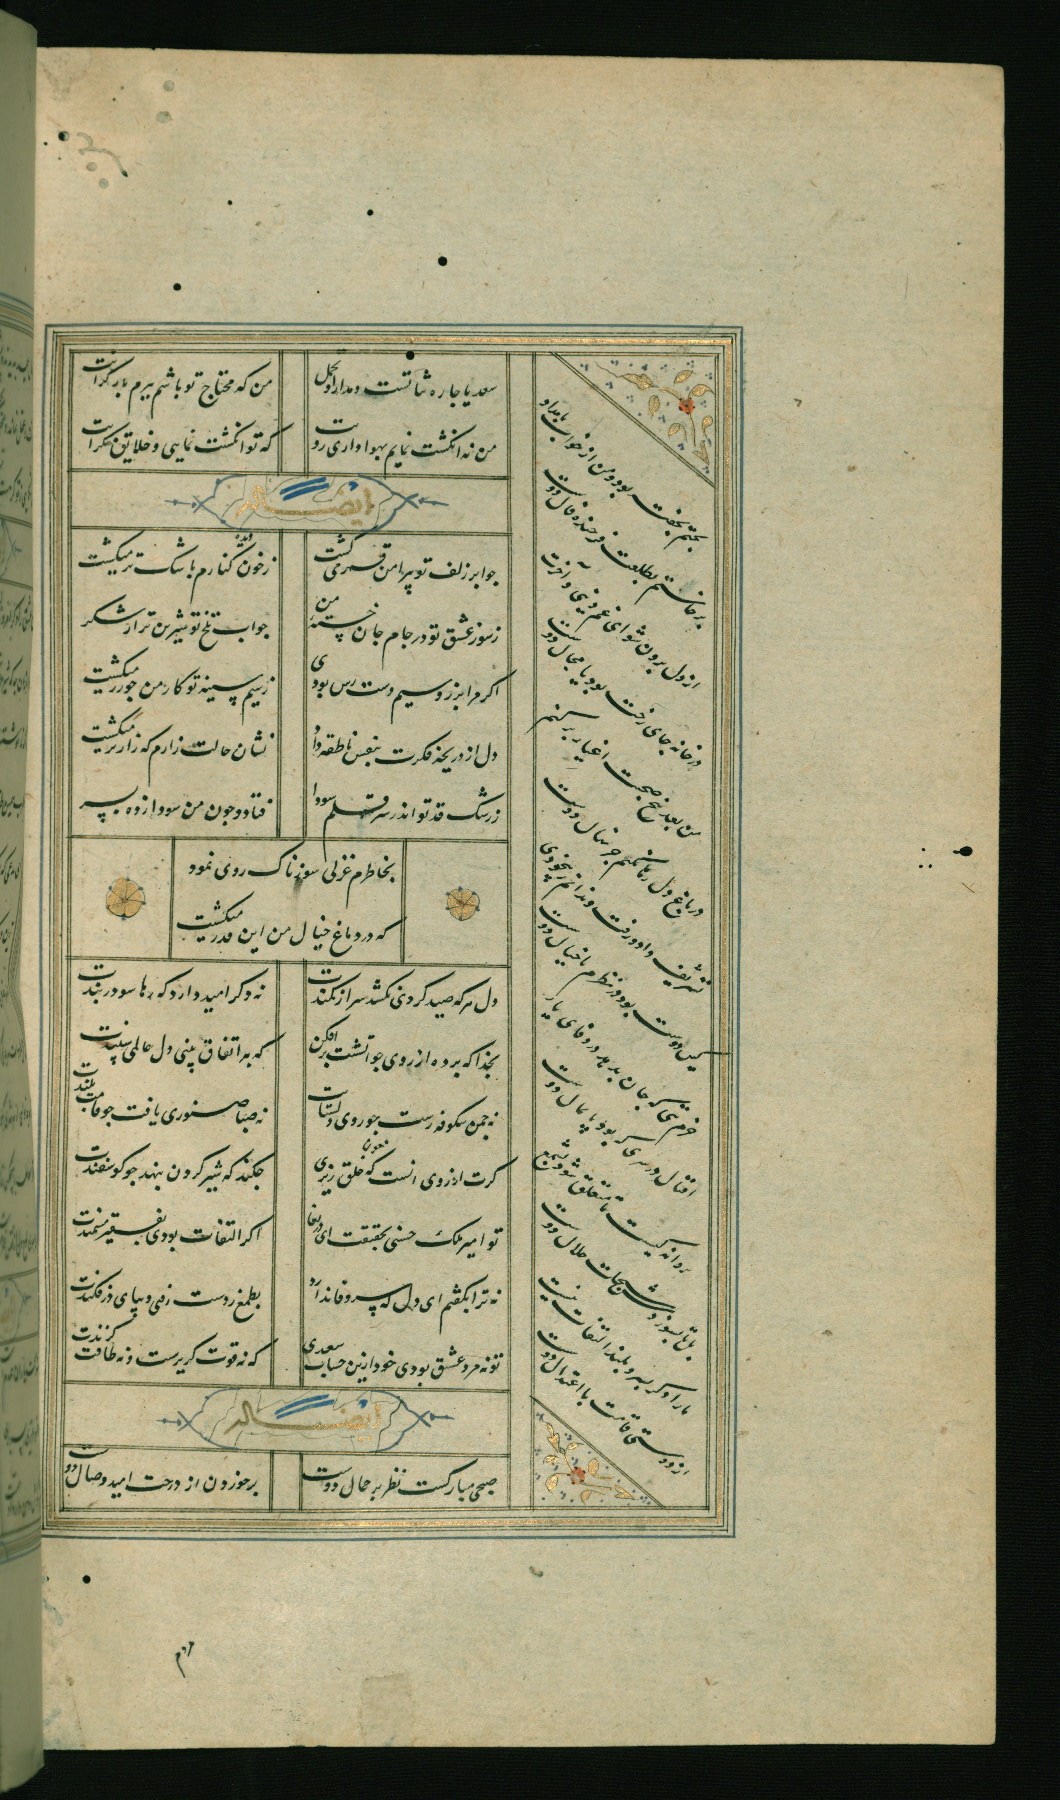 سعدیا چاره ثباتست و مدارا و تحمل
من که محتاج تو باشم ببرم بار گرانت
من نه انگشت نمایم بهواداری رویت
که تو انگشت نمایی و خلایق نگرانت
ایضاً له
جو ابر زلف تو پیرامن قمر میگشت
ز خون دیده کنارم باشک تر میگشت
ز سوز عشق تو در جام جان خسته من
جواب تلخ تو شیرین تر از شکر
اگر مرا بزر و سیم دست رس بودی
ز سیم سینه تو کار من جو زر میگشت
دل از دریچه فکرت بنفس ناطقه داد
نشان حالت زارم که زارتر میگشت
ز رشک قد تو اندر سر قلم سودا
فتاد و جون من سودا زده بسر
بخاطرم غزلی سوزناک روی نمود
که در دماغ خیال من این قدر میگشت
دل هر که صید کردی نکشد سر از کمندت
نه دگر امید دارد که رها سود ز بندت
بخدا که برده از روی جو آتشت برافکن
که به اتفاق بینی دل عالمی سپندت
نه جمن سکوفه رست جو روی دلستانت
نه صبا صنوبری یافت جو قامت بلندت
گرت ارزوی انست که خون خلق ریزی
جکند که شیر گردن ننهد جو گوسفندت
تو امیر ملک حسنی بحقیقت ای دریغا
اگر التفات بودی بفقیر مستمندت
نه ترا بگفتم ای دل که سر وفا ندارد
بطمع ز دست رفتی و بپای در فکندت
تو نه مرد عشق بودی خود ازین حساب سعدی
که نه قوت گریزست و نه طاقت گزندت
ایضاً له
صبحی مبارکست نظر بر جمال دوست
بر خوردن از درخت امید وصال دوست
بختم بخفته بود و من از خواب بامداد
برخاستم بطلعت فرخنده فال دوست
از دل برون شو ای غم دنیی و آخرت
در خانه جای رخت بود یا مجال دوست
من بعد بیخ صحبت اغیار بر کنم
در باغ دل رها نکنم جز نهال دوست
تشریف داد و رفت و ندانم ز بیخودی
کین دوست بود در نظرم یا خیال دوست
خرم تنی که جان بدهد در وفای یار
اقبال در سری که بود پایمال دوست
پروانه کیست تا متعلق شود بشمع
بل تا بسوزدش سبحات جلال دوست
ما را دگر به سرو بلند التفات نیست
از دوستی قامت با اعتدال دوست